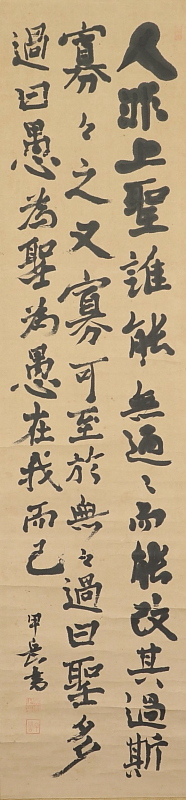 人非上聖誰能無過々而能改其過斯
寡々之又寡可至於無々過曰聖多
過曰愚為聖為愚在我而已
甲岳書